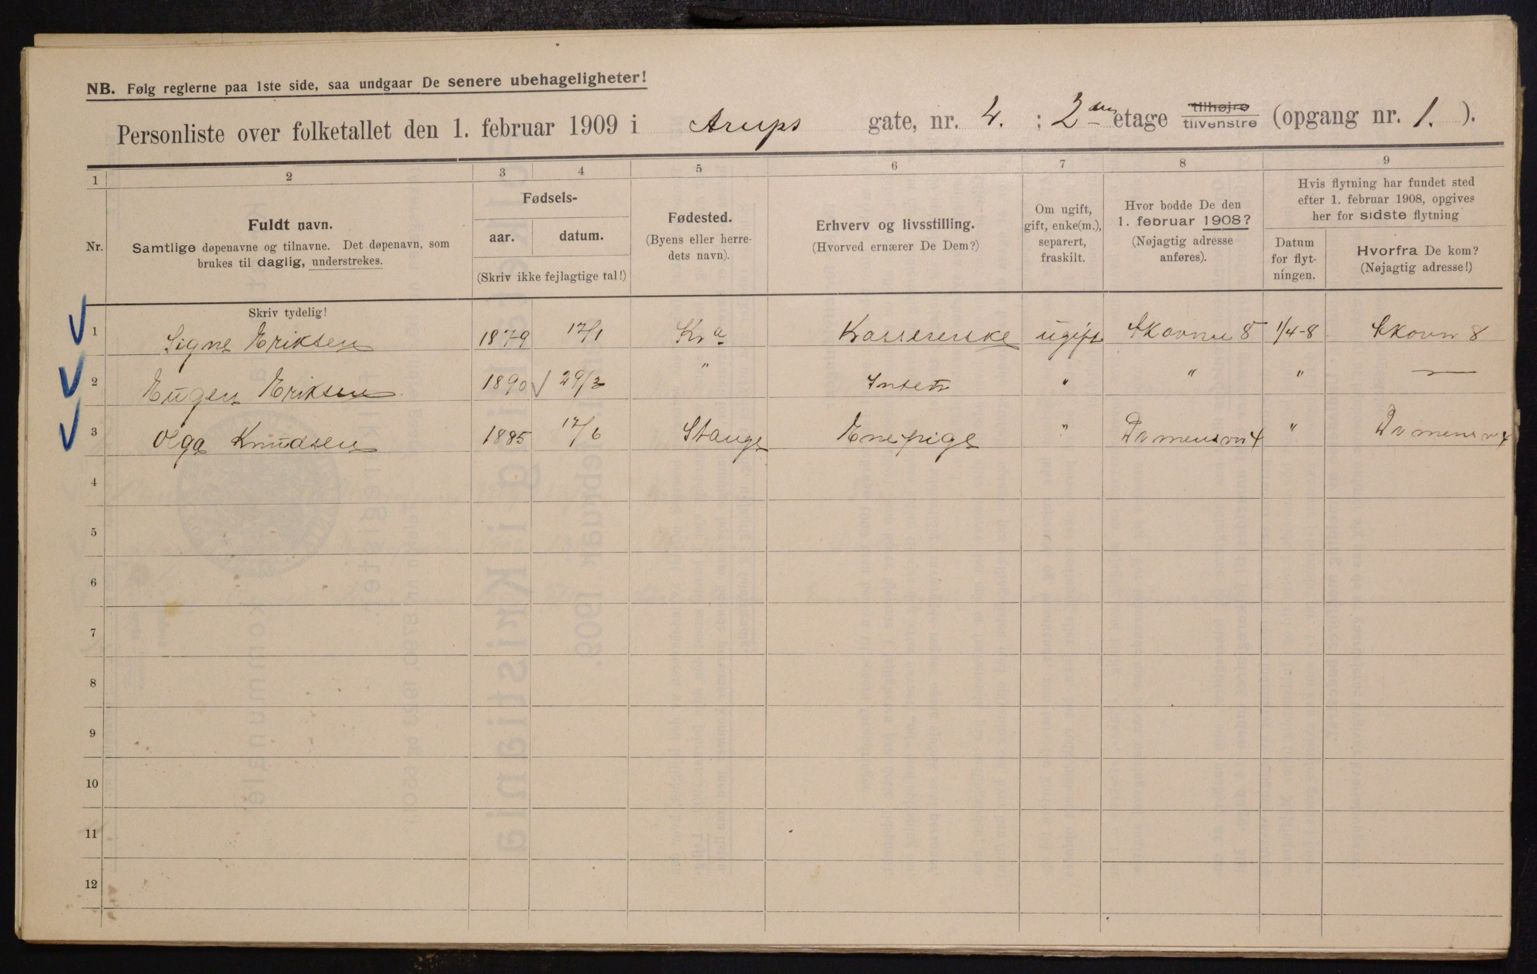 NB. Følg reglerne paa 1ste side, saa undgaar De senere ubehageligheter!
Personliste over folketallet den 1. februar 1909 i Arups gate, nr. 4. ; 2den etage tilhøjre tilvenstre (opgang nr. 1. ).
1 2 3 4 5 6 7 8 9
Nr.
Fuldt navn.
Samtlige døpenavne og tilnavne. Det døpenavn, som
brukes til daglig, understrekes.
Fødsels-
aar. datum.
(Skriv ikke fejlagtige tal!)
Fødested.
(Byens eller herre-
dets navn).
Erhverv og livsstilling.
(Hvorved ernærer De Dem?)
Om ugift,
gift, enke(m.),
separert,
fraskilt.
Hvor bodde De den
1. februar 1908?
(Nøjagtig adresse
anføres).
Hvis flytning har fundet sted
efter 1. februar 1908, opgives
her for sidste flytning
Datum
for flyt-
ningen.
Hvorfra De kom?
(Nøjagtig adresse!)
Skriv tydelig!
1 Signe Eriksen 1879 17/1 Kra Kassererske ugift Skovvn 8 1/4-8 Skovvn 8
2 Eugen Eriksen 1890 29/3 " " " "
3 Olga Knudsen 1885 17/6 Stange Enepige " "
4
5
6
7
8
9
10
11
12